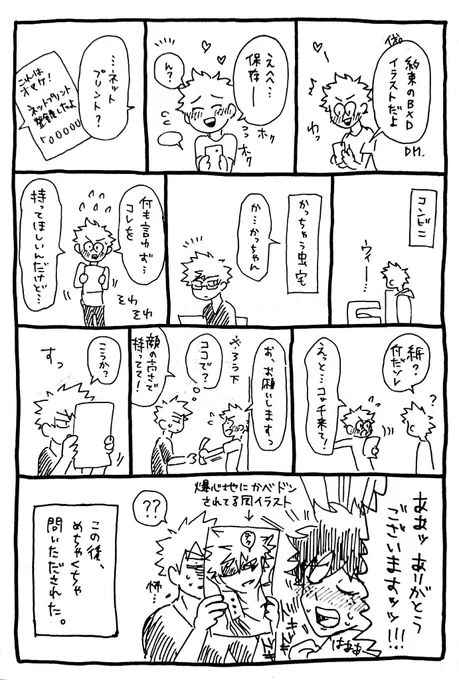 約束のBXD
イラストだよ
DM.
わっ
えへへ…
保存ー
ん?
ホク
ホク
…ネット
プリント?
これは
オマケ!
ネットプリント
登録したよ
「00000
コンビニ
ウィー…
かっちゃん宅
か…かっちゃん
何も言わず…
コレを
持ってほしいんだけど…
そわ
そわ
紙?
付だソレ
えっと…コッチ来て!
お、お願いしますっ
※ろう下
ココで?
顔の向きで
持ってて!
こうか?
すっ
ああッ ありがとう
ございますッッ!!!
はぁぁ
爆心地にかべドン
されてる図イラスト
??
怖…
この後、
めちゃくちゃ
問いただされた。